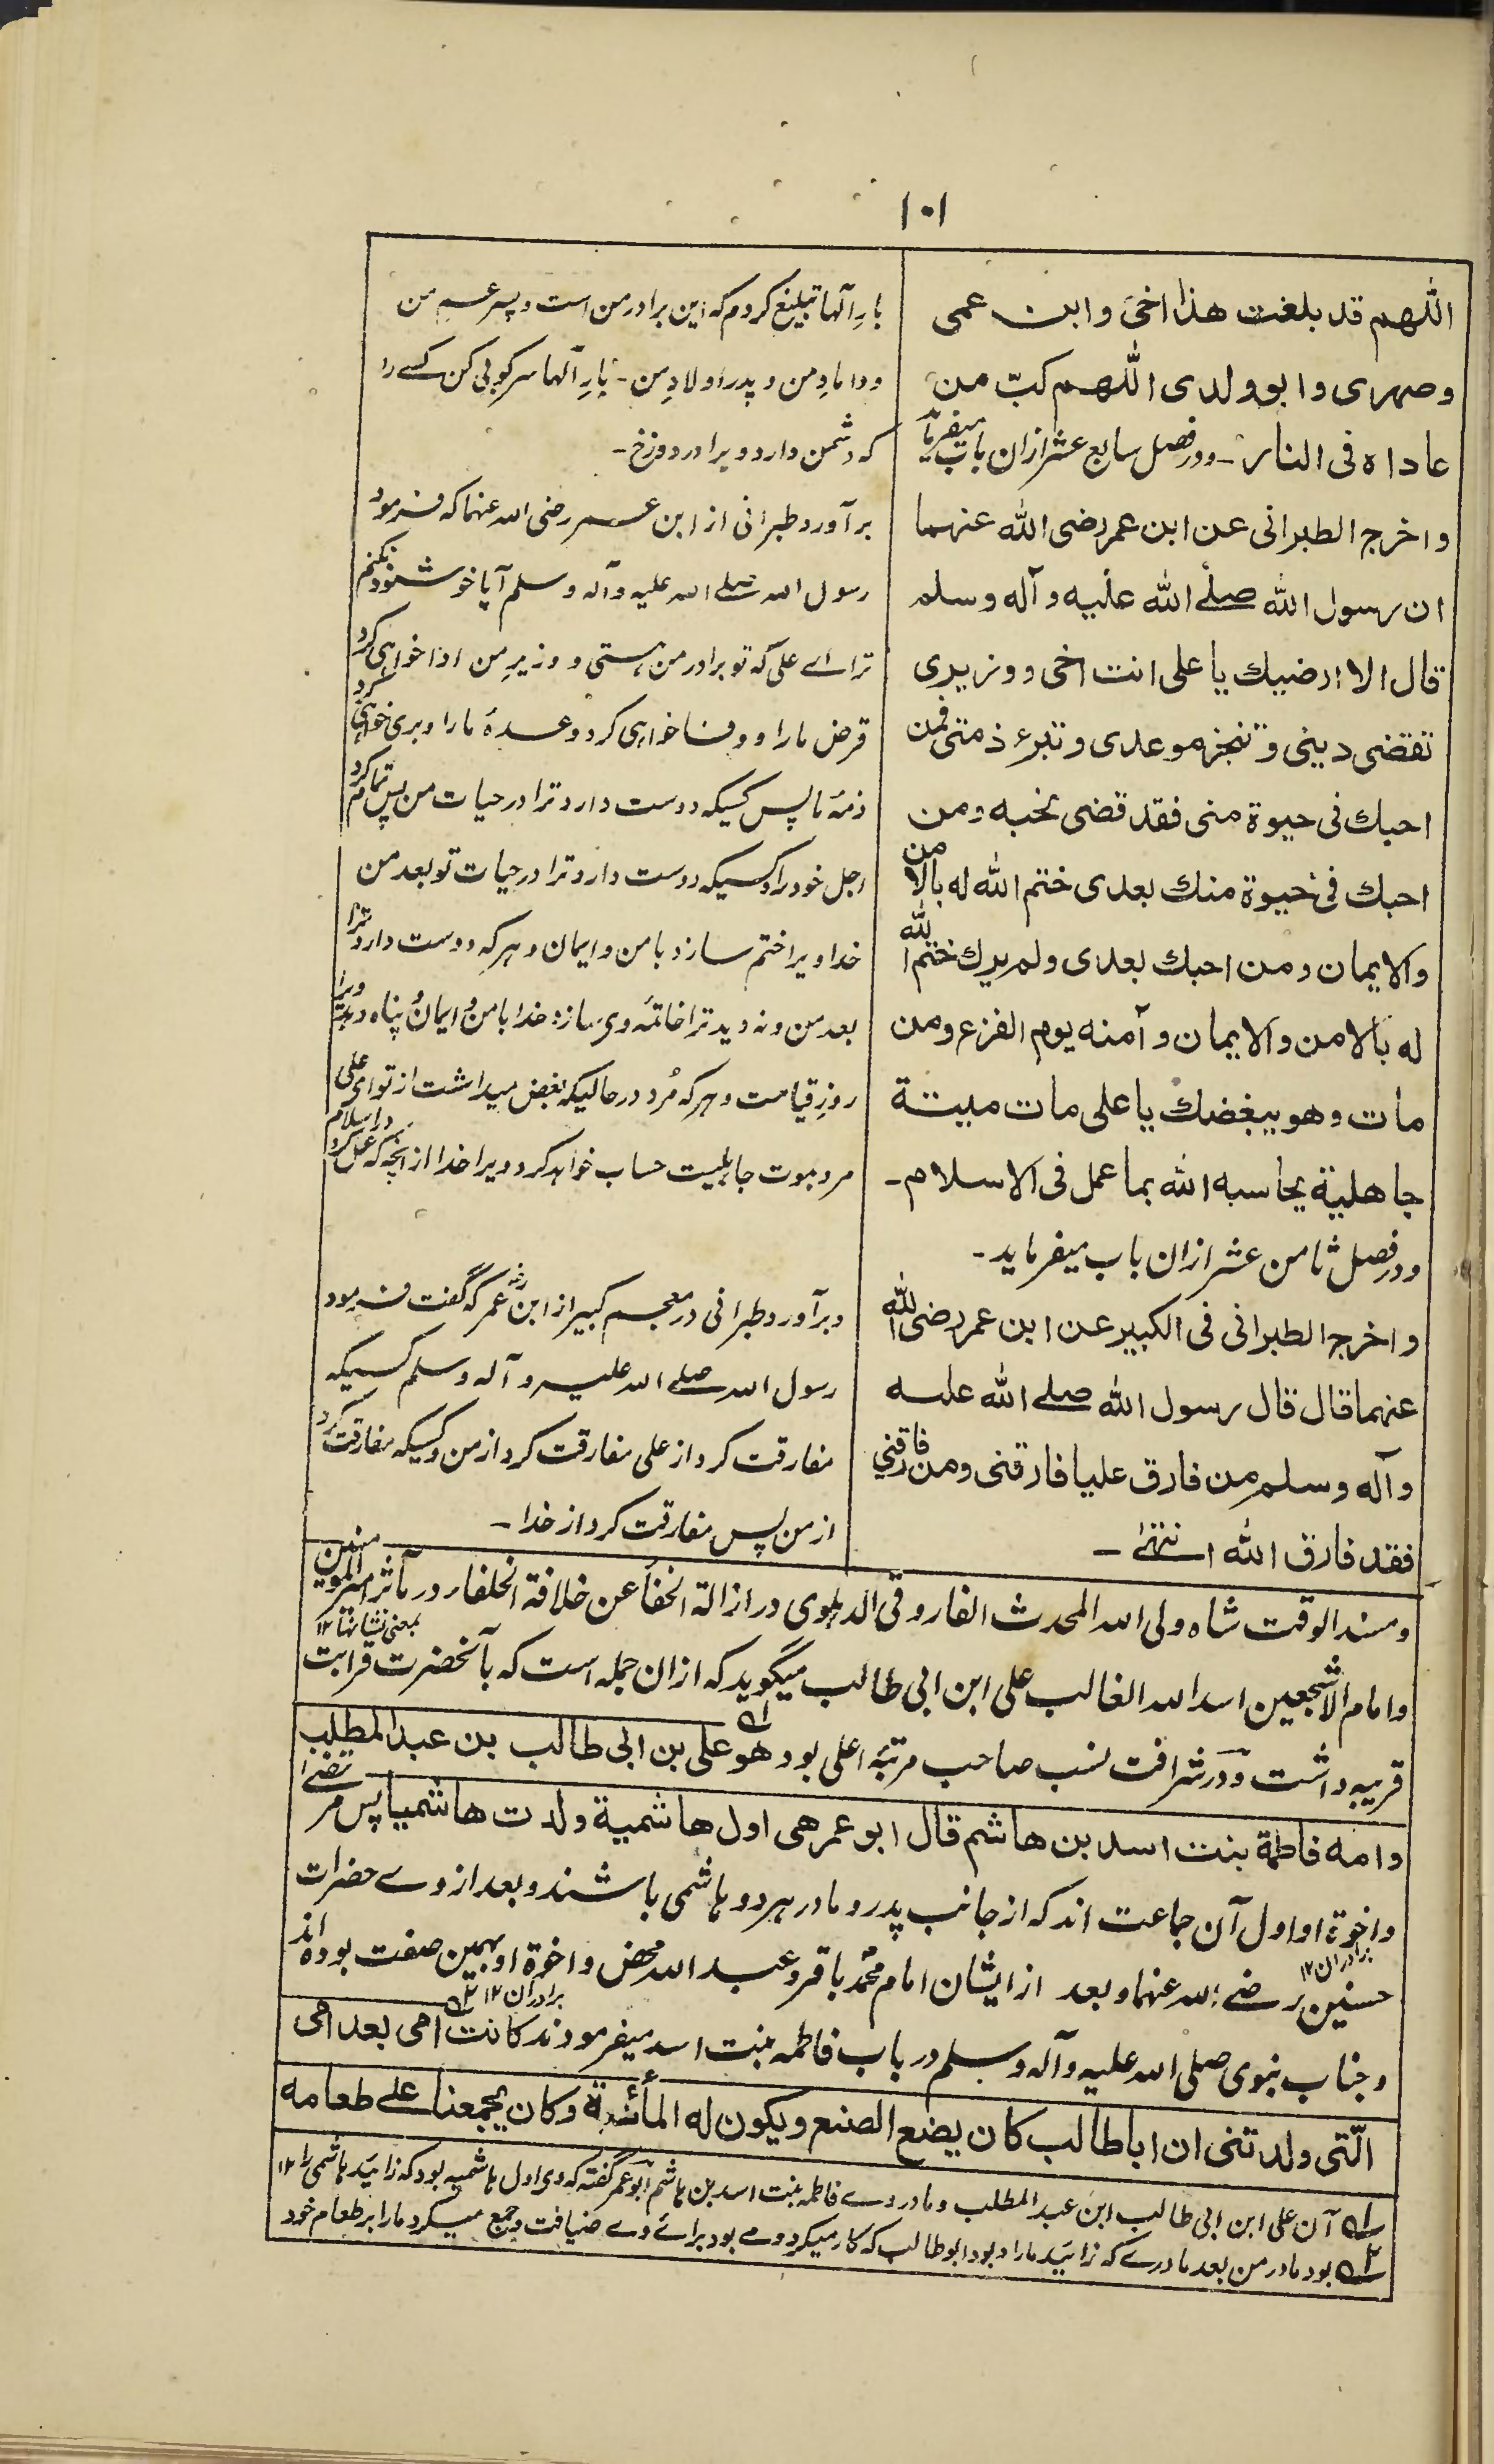 ۱۰۱
اللهم قد بلغت هذا اخی وابن عمی
وصهری وابو ولدی اللهم کبّ من
عاداه فی النار ـ ودر فصل سابع عشر ازان باب میفرماید
واخرج الطبرانی عن ابن عمر رضی الله عنهما
ان رسول الله صلے الله علیه وآله وسلم
قال الا ارضیك یا علی انت اخی ووزیری
تقضی دینی وتنجز موعدی وتبرء ذمتی فمن
احبك فی حیوة منی فقد قضی نحبه ومن
احبك فی حیوة منك بعدی ختم الله له بالامن
والایمان ومن احبك بعدی ولم یرك ختم الله
له بالامن والایمان وآمنه یوم الفزع ومن
مات وهو یبغضك یا علی مات میتة
جاهلیة یحاسبه الله بما عمل فی الاسلام ـ
ودر فصل ثامن عشر ازان باب میفرماید ـ
واخرج الطبرانی فی الکبیر عن ابن عمر رضی الله
عنهما قال قال رسول الله صلے الله علیه
وآله وسلم من فارق علیا فارقنی ومن فارقنی
فقد فارق الله انتهے ـ
بارِ آلها تبلیغ کردم که این برادر من است و پسر عم من
و دامادِ من و پدر اولادِ من ـ بارِ آلها سرکوبی کن کسے را
که دشمن دارد ویرا در دوزخ ـ
برآورد طبرانی از ابن عمر رضی الله عنهما که فرمود
رسول الله صلے الله علیه وآله وسلم آیا خوشنود نکنم
ترا اے علی که تو برادر من هستی و وزیرِ من ادا خواهی کرد
قرض ما را و وفا خواهی کرد وعدهٔ ما را و بری خواهی کرد
ذمهٔ ما پس کسیکه دوست دارد ترا در حیات من پس تمام کرد
اجل خود را و کسیکه دوست دارد ترا در حیات تو بعد من
خدا ویرا ختم سازد بامن وایمان و هر که دوست دارد ترا
بعد من و نه دید ترا خاتمهٔ وی سازد خدا بامن و ایمان و پناه دهد ویرا
روزِ قیامت و هر که مُرد در حالیکه بغض میداشت از تو ای علی
مرد بموت جاهلیت حساب خواهد کرد ویرا خدا از آنچه که عمل کرد در اسلام
وبرآورد طبرانی در معجم کبیر از ابن عمرؓ که گفت فرمود
رسول الله صلے الله علیه وآله وسلم کسیکه
مفارقت کرد از علی مفارقت کرد از من و کسیکه مفارقت کرد
از من پس مفارقت کرد از خدا ـ
ومسند الوقت شاه ولی الله المحدث الفاروقی الدہلوی در ازالة الخفا عن خلافة الخلفا در مآثر امیر المومنین
بمعنی نشانہا ۱۲
وامام الاشجعین اسد الله الغالب علی ابن ابی طالب میگوید که ازان جمله است که بآنحضرت قرابت
قریبه داشت و در شرافت نسب صاحب مرتبهٔ اعلی بود ۱ھ هو علی بن ابی طالب بن عبد المطلب
وامه فاطمة بنت اسد بن هاشم قال ابو عمر هی اول هاشمیة ولدت هاشمیا پس مرتضے
واخوة او اول آن جماعت اند که از جانب پدر ومادر هر دو هاشمی باشند وبعد از وے حضرات
برادران ۱۲
حسنین رضے الله عنهما وبعد از ایشان امام محمد باقر وعبد الله محض واخوة او بهمین صفت بوده اند
برادران ۱۲
وجناب نبوی صلی الله علیه وآله وسلم در باب فاطمه بنت اسد میفرمودند ۲ھ کانت امی بعد امی
الّتی ولدتنی ان ابا طالب کان یضع الصنع ویکون له المأئدة وکان یجمعنا علے طعامه
۱ھ آن علی ابن ابی طالب ابن عبد المطلب ومادر وے فاطمه بنت اسد بن هاشم ابو عمر گفته که وی اول هاشمیه بود که زائید هاشمی را ۱۲
۲ھ بود مادر من بعد مادرے که زائید مارا و بود ابو طالب که کار میکرد و مے بود براے وے ضیافت و جمع میکرد ما را بر طعام خود